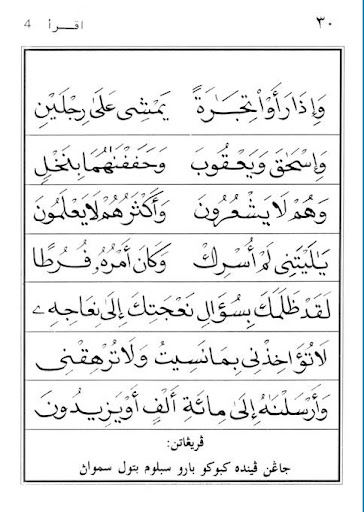 اقرأ 4 ٣٠
وَإِذَارَأَوْاْ تِجَٰرَةً يَمْشِى عَلَىٰ رِجْلَيْنِ
وَإِسْحَٰقَ وَيَعْقُوبَ وَحَفَفْنَٰهُمَا بِنَخْلٍ
وَهُمْ لَا يَشْعُرُونَ وَأَكْثَرُهُمْ لَا يَعْلَمُونَ
يَٰلَيْتَنِى لَمْ أُشْرِكْ وَكَانَ أَمْرُهُۥ فُرُطًا
لَقَدْ ظَلَمَكَ بِسُؤَالِ نَعْجَتِكَ إِلَىٰ نِعَاجِهِۦ
لَا تُؤَاخِذْنِى بِمَا نَسِيتُ وَلَا تُرْهِقْنِى
وَأَرْسَلْنَٰهُ إِلَىٰ مِا۟ئَةِ أَلْفٍ أَوْ يَزِيدُونَ
ڤريڠاتن:
جاڠن ڤينده كبوكو بارو سبلوم بتول سموان